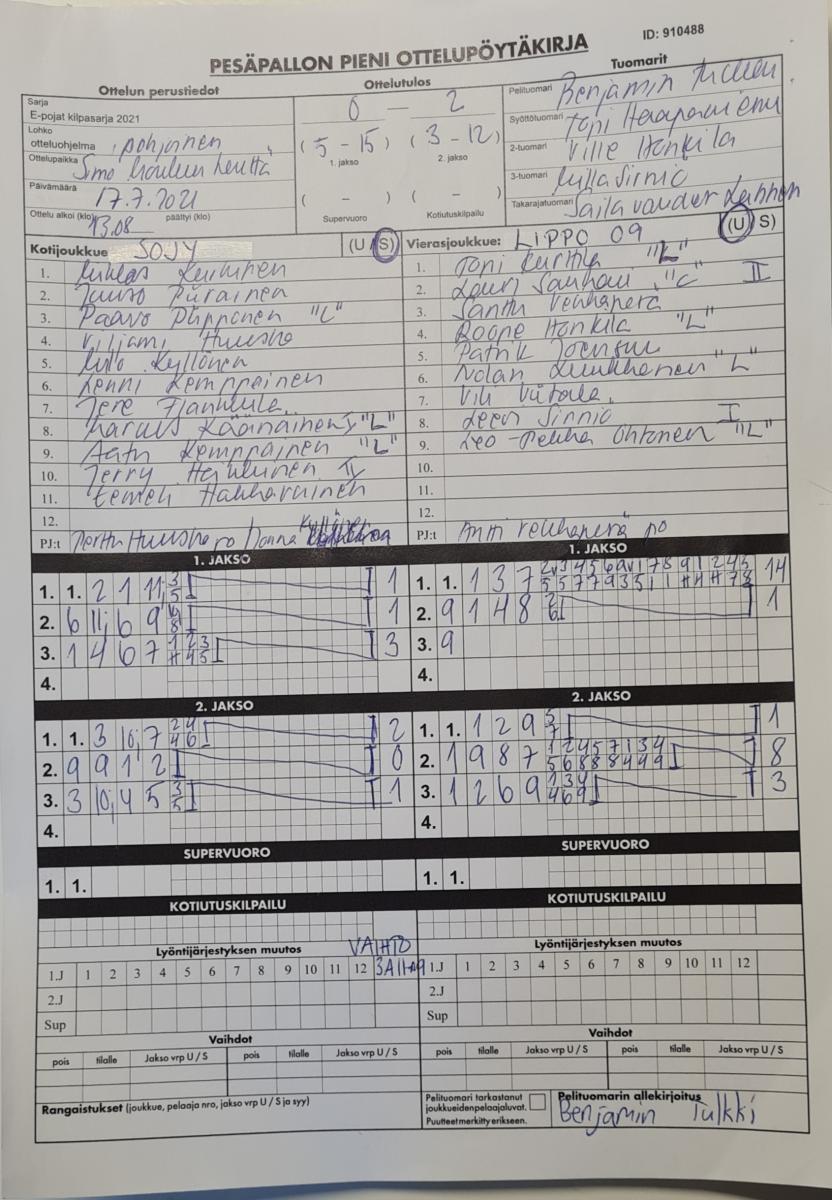 ID: 910488
PESÄPALLON PIENI OTTELUPÖYTÄKIRJA
Ottelun perustiedot
Sarja
E-pojat kilpasarja 2021
Lohko
otteluohjelma pohjoinen
Ottelupaikka Simo
Päivämäärä 17.7.2021
Ottelu alkoi (klo) 13.08 päättyi (klo)
Ottelutulos
0 – 2
(5 - 15) (3 - 12)
1. jakso 2. jakso
( - ) ( - )
Supervuoro Kotiutuskilpailu
Tuomarit
Pelituomari Benjamin
Syöttötuomari Toni
2-tuomari Ville Honkila
3-tuomari Sirniö
Takarajatuomari Saila
Kotijoukkue SOJY (U S)
1.
2. Juuso Piirainen
3. Paavo Piipponen "L"
4. Viljami Huusko
5. Kyllönen
6. Lenni Kemppainen
7. Jere
8. Kääriäinen I "L"
9. Kemppainen "L"
10. Jerry Heikkinen II
11. Eemeli Hakkarainen
12.
PJ:t Huusko
Vierasjoukkue: LIPPO 09 (U S)
1. Toni Kurttila "L"
2. Lauri "C" II
3. Santtu Veikkaperä
4. Roope Honkila "L"
5. Patrik Joensuu
6. Nolan Luukkonen "L"
7. Vili
8. Leevi Sirniö I
9. Leo-Pekka Ohtonen "L"
10.
11.
12.
PJ:t Antti Veikkaperä po
1. JAKSO
1. 1. 2 1 11; 3 5 1
2. 6 11; 6 9 1
3. 1 4 6 7 3
4.
1. JAKSO
1. 1. 1 3 7 14
2. 9 1 4 8 1
3. 9
4.
2. JAKSO
1. 1. 3 10; 7 2 4 4 6 2
2. 9 9 1 2 0
3. 3 10; 4 5 3 5 1
4.
2. JAKSO
1. 1. 1 2 9 1
2. 1 9 8 7 1 2 4 5 7 1 3 4 5 6 8 8 8 4 4 9 8
3. 1 2 6 9 1 3 4 4 6 9 3
4.
SUPERVUORO
1. 1.
SUPERVUORO
1. 1.
KOTIUTUSKILPAILU
KOTIUTUSKILPAILU
Lyöntijärjestyksen muutos VAIHTO
1.J 1 2 3 4 5 6 7 8 9 10 11 12
2.J
Sup
Lyöntijärjestyksen muutos
1.J 1 2 3 4 5 6 7 8 9 10 11 12
2.J
Sup
Vaihdot
pois tilalle Jakso vrp U / S pois tilalle Jakso vrp U / S
Vaihdot
pois tilalle Jakso vrp U / S pois tilalle Jakso vrp U / S
Rangaistukset (joukkue, pelaaja nro, jakso vrp U / S ja syy)
Pelituomari tarkastanut
joukkueiden pelaajaluvat.
Puutteet merkitty erikseen.
Pelituomarin allekirjoitus
Benjamin Tulkki